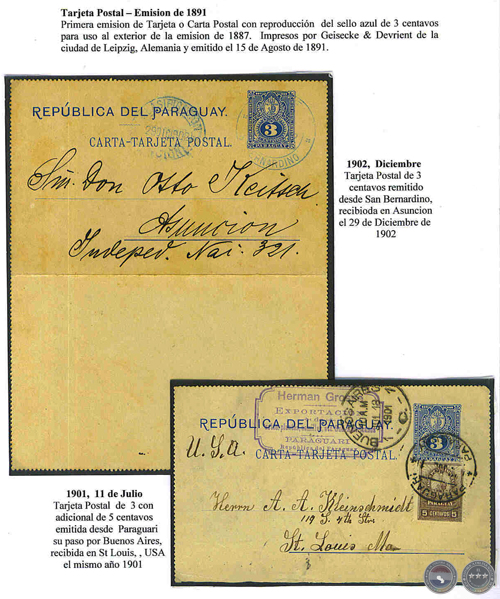 Tarjeta Postal – Emision de 1891
Primera emision de Tarjeta o Carta Postal con reproducción del sello azul de 3 centavos
para uso al exterior de la emision de 1887. Impresos por Geisecke & Devrient de la
ciudad de Leipzig, Alemania y emitido el 15 de Agosto de 1891.
REPÚBLICA DEL PARAGUAY.
3
CARTA-TARJETA POSTAL.
Sñr. Don Otto Keitsch
Asuncion
Indeped. Nai. 321.
1902, Diciembre
Tarjeta Postal de 3
centavos remitido
desde San Bernardino,
recibioda en Asuncion
el 29 de Diciembre de
1902
Herman
EXPORTACION
PARAGUARI
BUENOS AIRES
1901
REPÚBLICA DEL PARAGUAY.
3
U.S.A.
CARTA-TARJETA POSTAL.
PARAGUAY
5 CENTAVOS 5
Herrn A. A. Kleinschmidt
119 S. 4th Str.
St. Louis Mo
1901, 11 de Julio
Tarjeta Postal de 3 con
adicional de 5 centavos
emitida desde Paraguari
su paso por Buenos Aires,
recibida en St Louis, , USA
el mismo año 1901